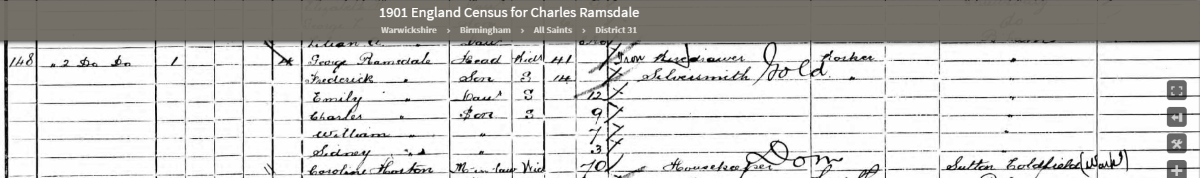 1901 England Census for Charles Ramsdale
Warwickshire › Birmingham › All Saints › District 31
Lilian Daur
148 " 2 Do Do 1 George Ramsdale Head Wid 41 Iron Worker
Frederick " Son S 14 Silversmith Gold "
Emily " Daur S 12 "
Charles " Son S 9 "
William " " 7 "
Sidney " " 3 "
Caroline Horton M-in-law Wid 70 Housekeeper Dom Sutton Coldfield (Wark)